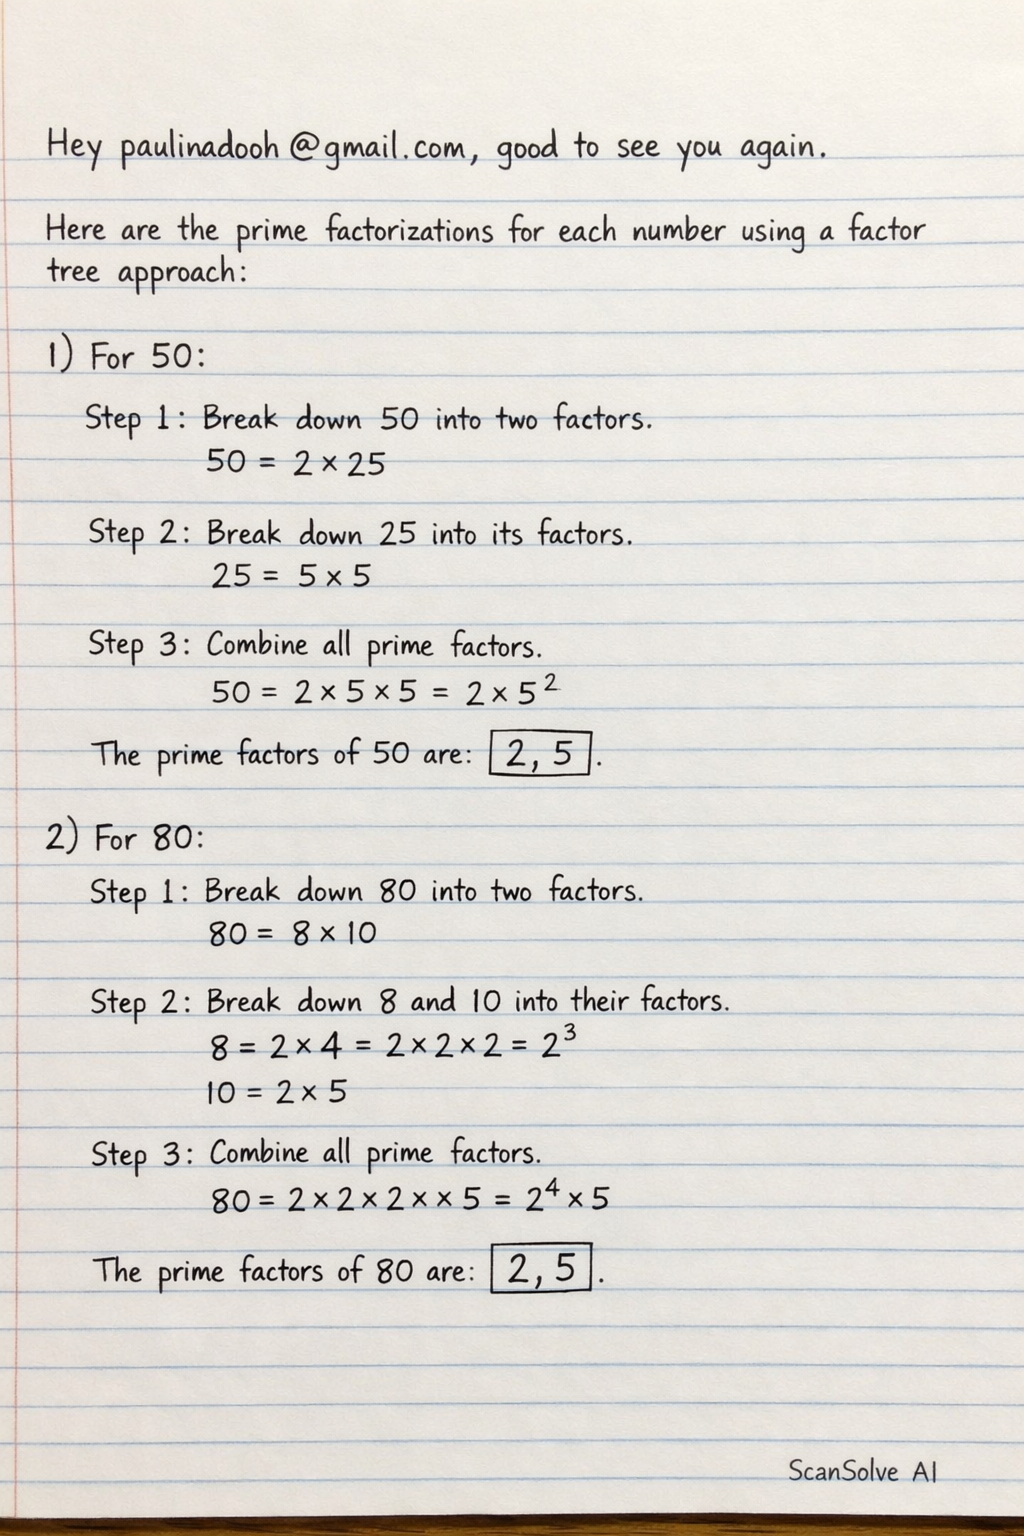 Hey paulinadooh@gmail.com, good to see you again.
Here are the prime factorizations for each number using a factor
tree approach:
1) For 50:
Step 1: Break down 50 into two factors.
50 = 2 × 25
Step 2: Break down 25 into its factors.
25 = 5 × 5
Step 3: Combine all prime factors.
50 = 2 × 5 × 5 = 2 × 5²
The prime factors of 50 are: 2, 5.
2) For 80:
Step 1: Break down 80 into two factors.
80 = 8 × 10
Step 2: Break down 8 and 10 into their factors.
8 = 2 × 4 = 2 × 2 × 2 = 2³
10 = 2 × 5
Step 3: Combine all prime factors.
80 = 2 × 2 × 2 × × 5 = 2⁴ × 5
The prime factors of 80 are: 2, 5.
ScanSolve AI